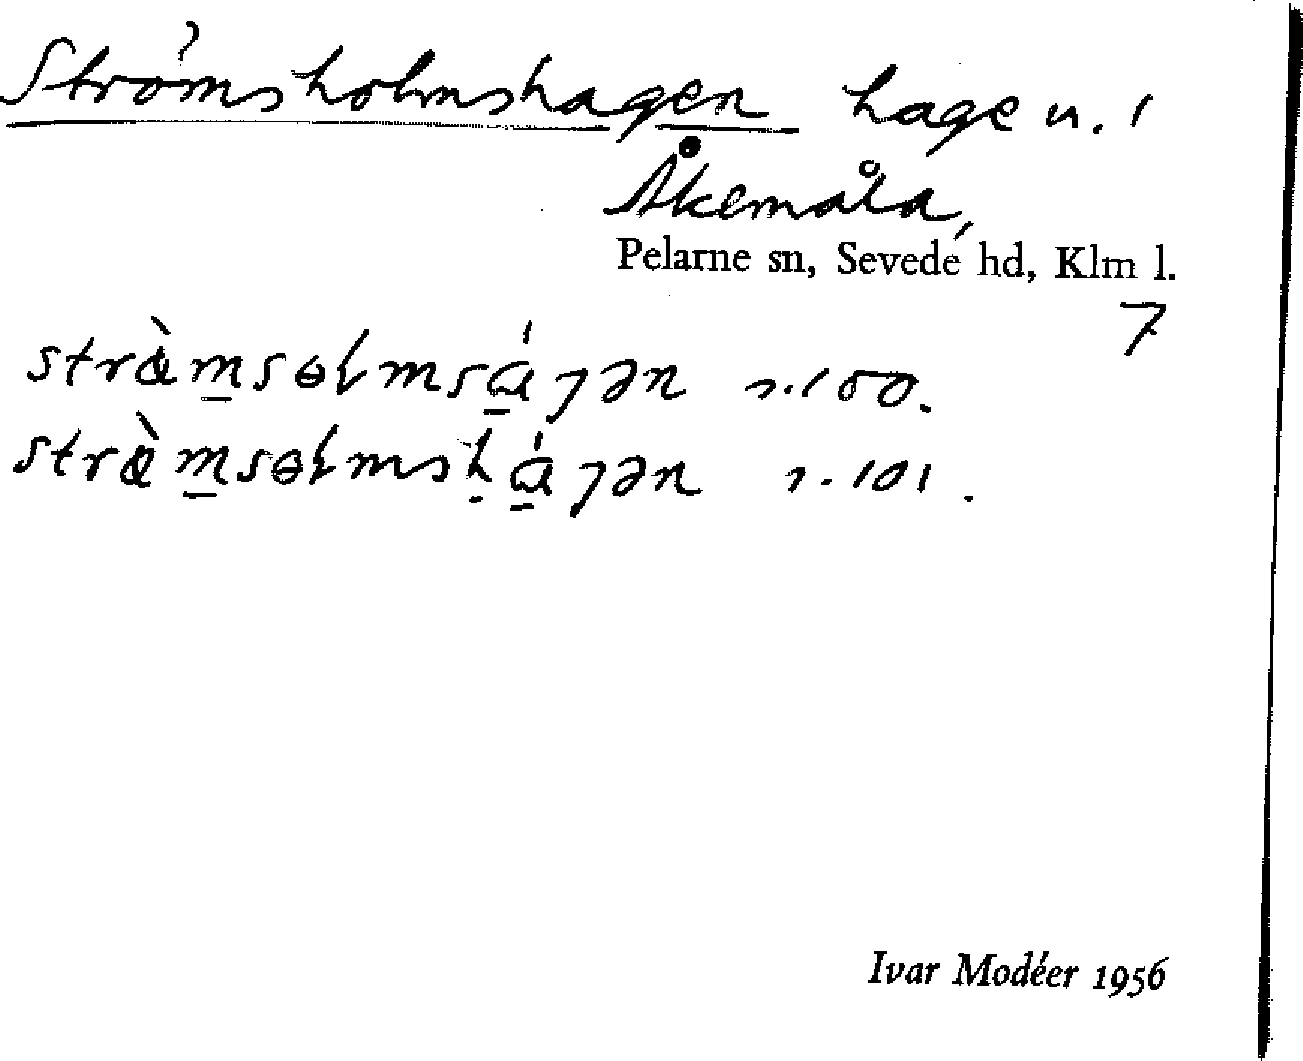 Strömsholmshagen hage u. 1
Åkemåla,
Pelarne sn, Sevede hd, Klm l.
7
stræ̀m̲sɵɫmsɑ̲́ɡən n. 100.
stræ̀m̲sɵɫmsḥɑ̲́ɡən n. 101.
Ivar Modéer 1956